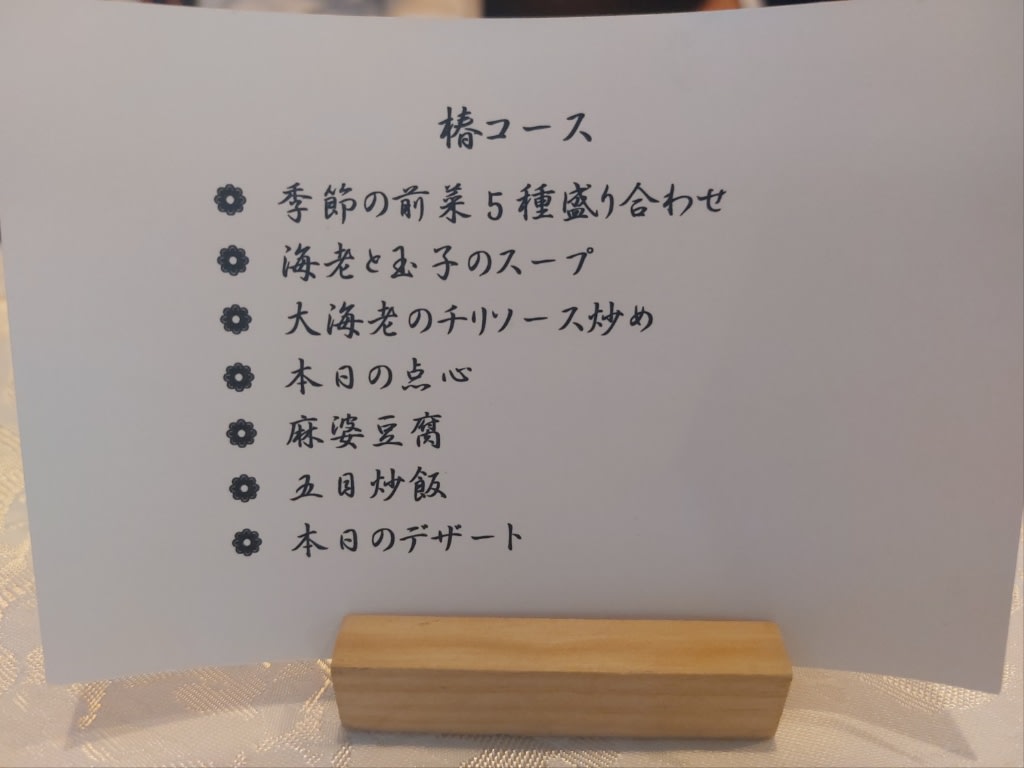 椿コース
季節の前菜5種盛り合わせ
海老と玉子のスープ
大海老のチリソース炒め
本日の点心
麻婆豆腐
五目炒飯
本日のデザート